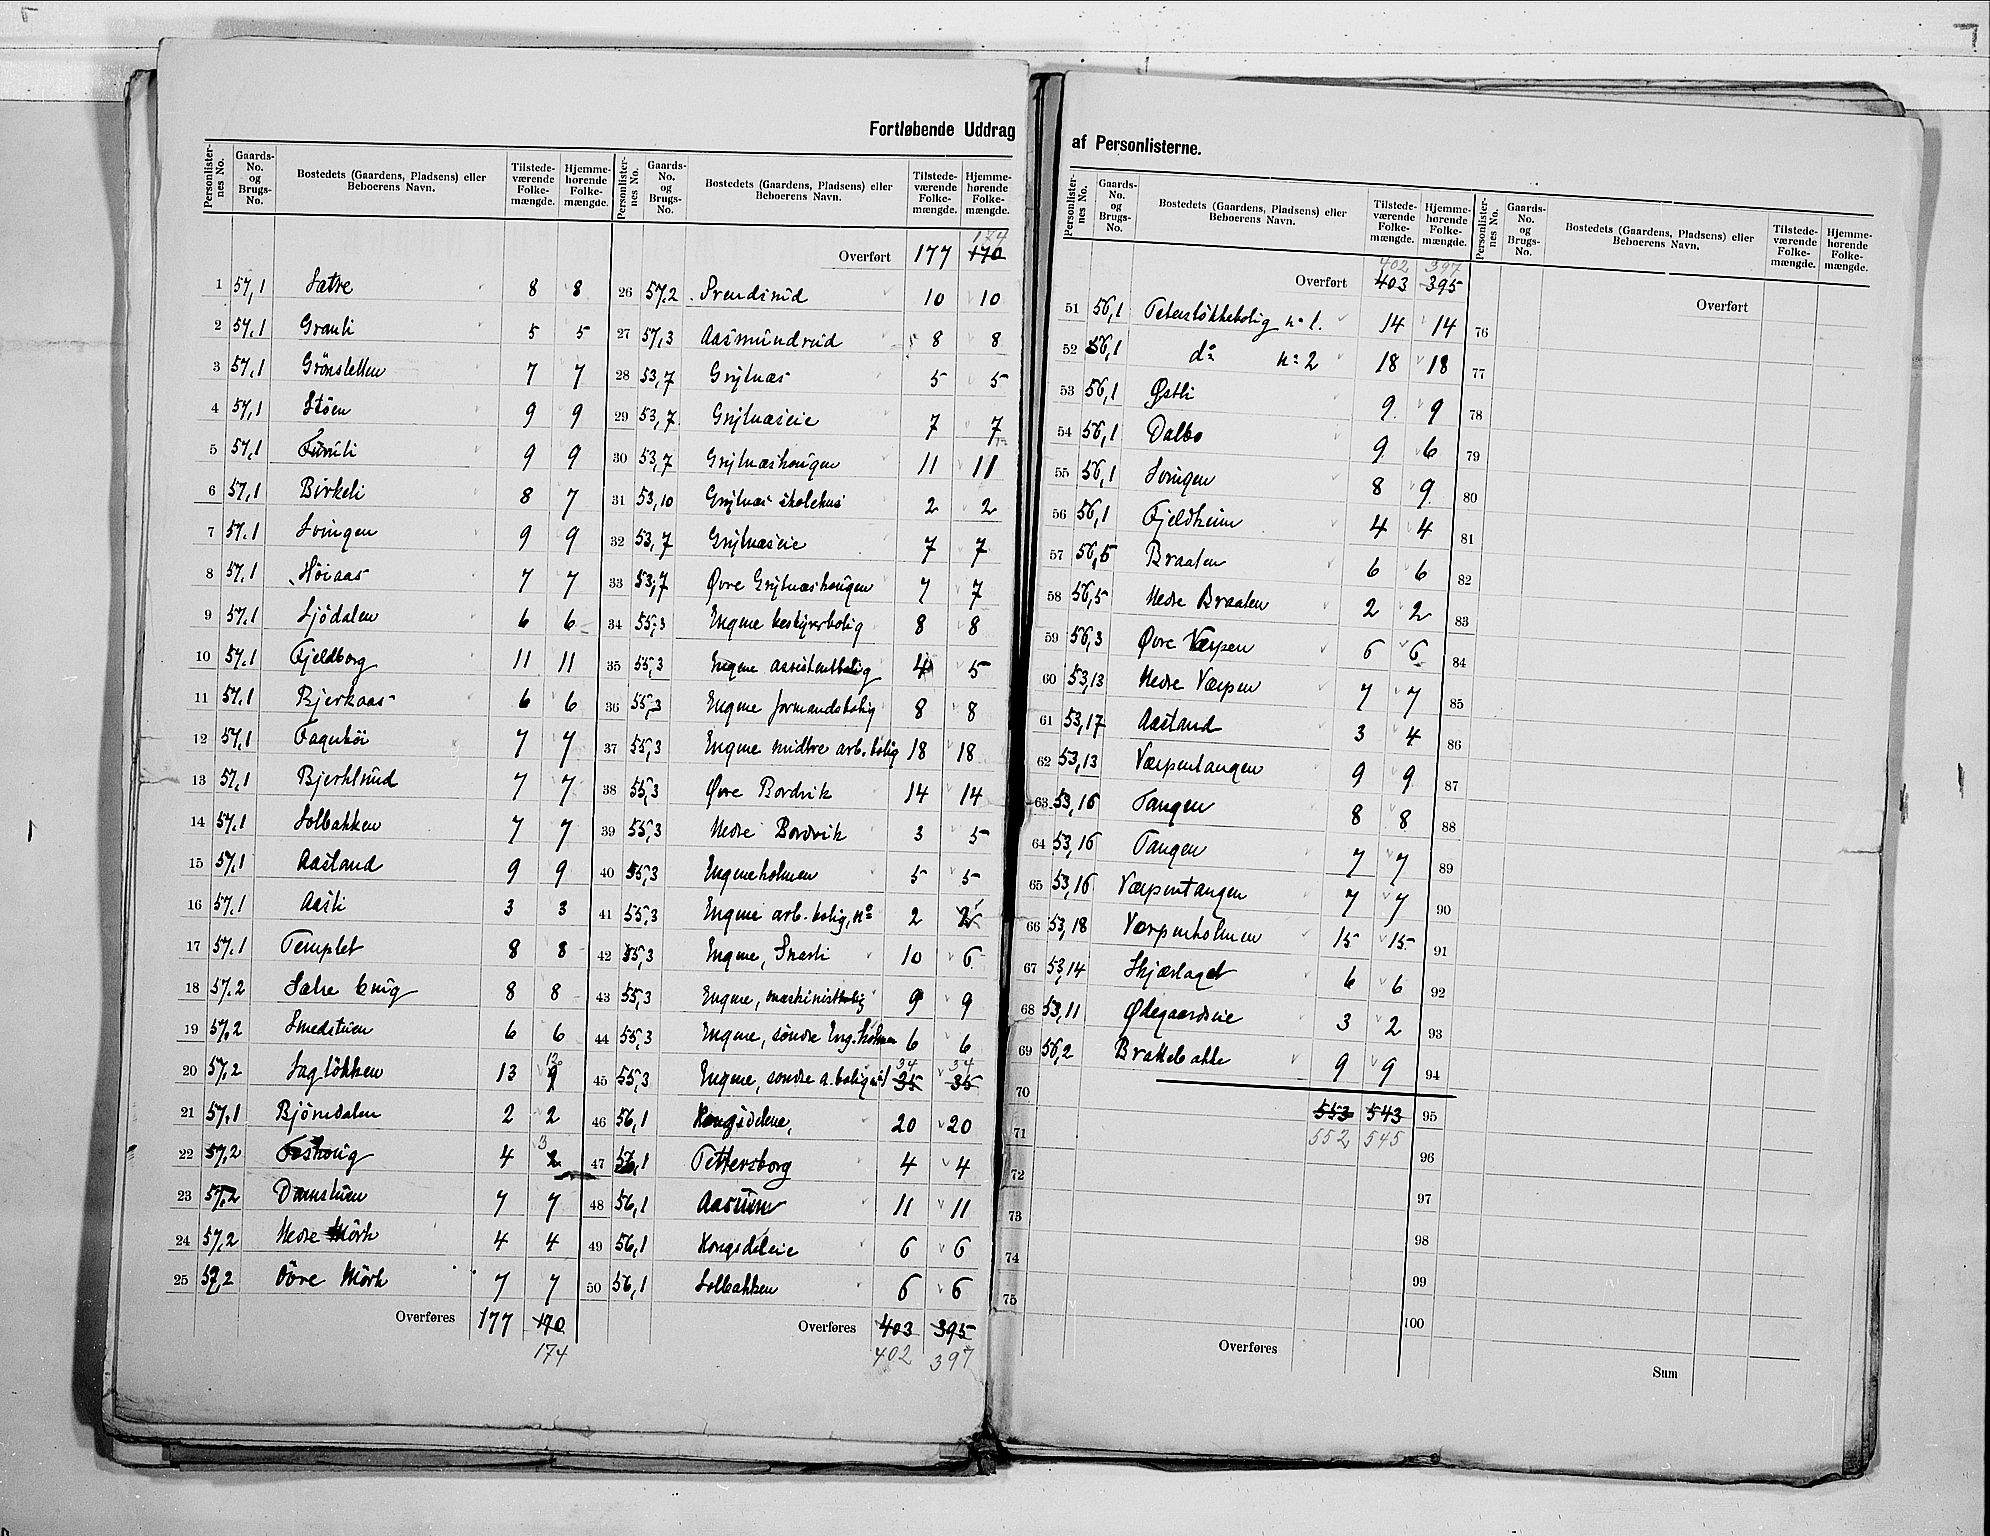 Fortløbende Uddrag
Personlister-nes No.
Gaards-No. og Brugs-No.
Bostedets (Gaardens, Pladsens) eller Beboerens Navn.
Tilstede-værende Folke-mængde.
Hjemme-hørende Folke-mængde.
1 57,1 Sætre 8 8
2 57,1 Granli 5 5
3 57,1 Grønsletten 7 7
4 57,1 Støen 9 9
5 57,1 Furuli 9 9
6 57,1 Birkeli 8 7
7 57,1 Svingen 9 9
8 57,1 Høiaas 7 7
9 57,1 Sjødalen 6 6
10 57,1 Fjeldborg 11 11
11 57,1 Bjerkaas 6 6
12 57,1 Fagerhøi 7 7
13 57,1 Bjerklund 7 7
14 57,1 Solbakken 7 7
15 57,1 Aasland 9 9
16 57,1 Aasli 3 3
17 57,1 Templet 8 8
18 57,2 Sætre brug 8 8
19 57,2 Smedstuen 6 6
20 57,2 Sagløkken 13 12 9
21 57,1 Bjørndalen 2 2
22 57,2 4 3 2
23 57,2 Damstuen 7 7
24 57,2 Nedre Mørk 4 4
25 57,2 Øvre Mørk 7 7
Overføres 177 170
174
Personlister-nes No.
Gaards-No. og Brugs-No.
Bostedets (Gaardens, Pladsens) eller Beboerens Navn.
Tilstede-værende Folke-mængde.
Hjemme-hørende Folke-mængde.
174
Overført 177 170
26 57,2 Svendsrud 10 10
27 57,3 Aasmundrud 8 8
28 53,7 Grytnæs 5 5
29 53,7 Grytnæseie 7 7
30 53,7 Grytnæshaugen 11 11
31 53,10 Grytnæs skolehus 2 2
32 53,7 Grytnæseie 7 7
33 53,7 Øvre Grytnæshaugen 7 7
34 55,3 Engene bestyrerbolig 8 8
35 55,3 Engene assistentbolig 4 5
36 55,3 Engene formandsbolig 8 8
37 55,3 Engene midtre arb. bolig 18 18
38 55,3 Øvre Bordvik 14 14
39 55,3 Nedre Bordvik 3 5
40 55,3 Engeneholmen 5 5
41 55,3 Engene arb. bolig, no 2 2
42 55,3 Engene, Snarli 10 6
43 55,3 Engene, maskinistbolig 9 9
44 55,3 Engene, søndre Eng.holmen 6 6
34 34
45 55,3 Engene, søndre a. bolig 35 35
46 56,1 Kongsdelene, 20 20
47 56,1 Pettersborg 4 4
48 56,1 11 11
49 56,1 Kongsdeleie 6 6
50 56,1 Solbakken 6 6
Overføres 403 395
402 397
af Personlisterne.
Personlister-nes No.
Gaards-No. og Brugs-No.
Bostedets (Gaardens, Pladsens) eller Beboerens Navn.
Tilstede-værende Folke-mængde.
Hjemme-hørende Folke-mængde.
402 397
Overført 403 395
51 56,1 Petersløkkebolig no 1. 14 14
52 56,1 do no 2 18 18
53 56,1 Østli 9 9
54 56,1 Dalbo 9 6
55 56,1 Svingen 8 9
56 56,1 Fjeldheim 4 4
57 56,5 Braaten 6 6
58 56,5 Nedre Braaten 2 2
59 56,3 Øvre Værpen 6 6
60 53,13 Nedre Værpen 7 7
61 53,17 Aasland 3 4
62 53,13 Værpentangen 9 9
63 53,16 Tangen 8 8
64 53,16 Tangen 7 7
65 53,16 Værpentangen 7 7
66 53,18 Værpenholmen 15 15
67 53,14 Skjærlaget 6 6
68 53,11 Ødegaardseie 3 2
69 56,2 Brakkebakke 9 9
70 553 543
71 552 545
72
73
74
75
Overføres
Personlister-nes No.
Gaards-No. og Brugs-No.
Bostedets (Gaardens, Pladsens) eller Beboerens Navn.
Tilstede-værende Folke-mængde.
Hjemme-hørende Folke-mængde.
Overført
76
77
78
79
80
81
82
83
84
85
86
87
88
89
90
91
92
93
94
95
96
97
98
99
100
Sum